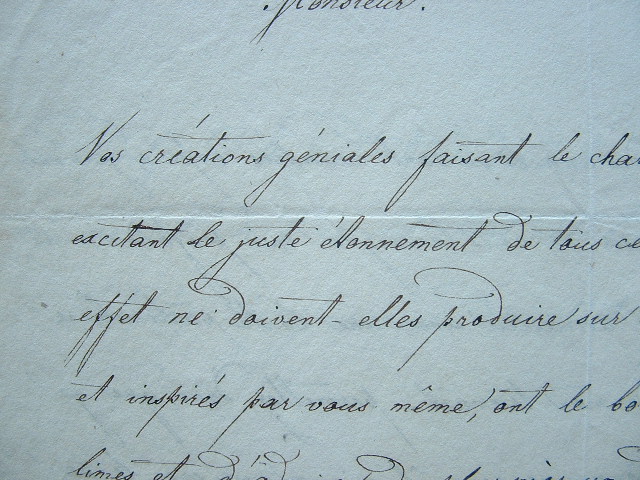 Monsieur.
Vos créations géniales faisant le
excitant le juste étonnement de tous
effét ne doivent-elles produire sur
et inspirés par vous même, ont le
limes et